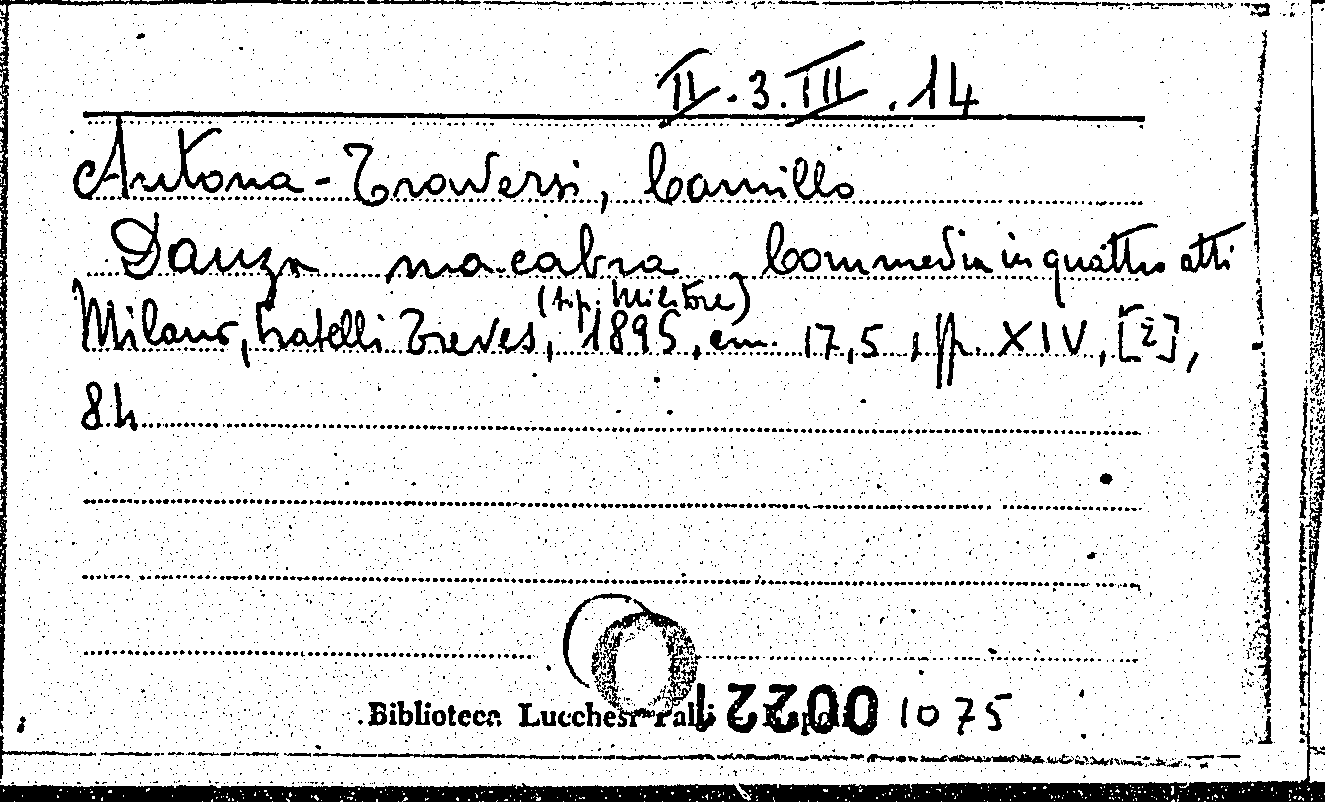 II.3.III.14
Antona-Traversi, Camillo
Danza macabra, Commedia in quattro atti
(tip. Militare)
Milano, Fratelli Treves, 1895, cm. 17,5, pp. XIV, [2],
84
Biblioteca Lucchesi Palli
00221 1075